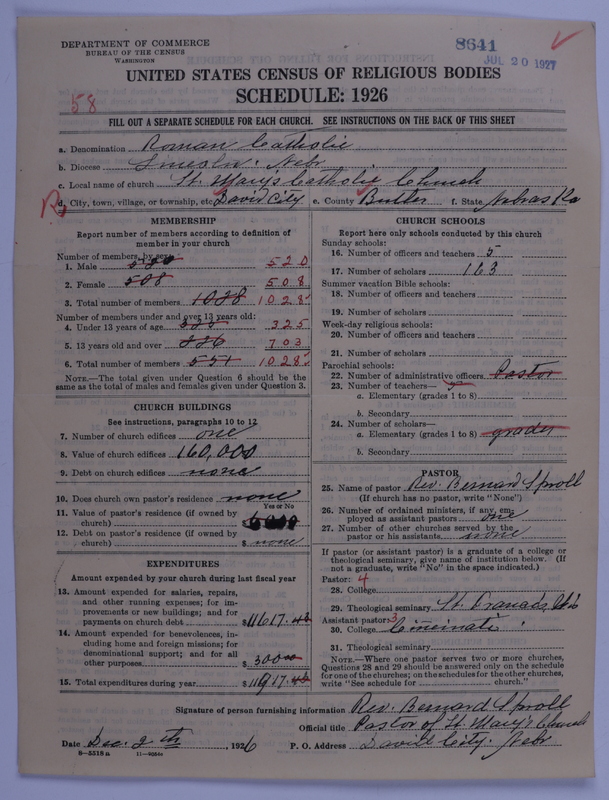 DEPARTMENT OF COMMERCE
BUREAU OF THE CENSUS
WASHINGTON
8641
JUL 20 1927
UNITED STATES CENSUS OF RELIGIOUS BODIES
SCHEDULE: 1926
58
FILL OUT A SEPARATE SCHEDULE FOR EACH CHURCH. SEE INSTRUCTIONS ON THE BACK OF THIS SHEET
a. Denomination Roman Catholic
b. Diocese Lincoln. Nebr
c. Local name of church St. Mary's Catholic Church
R d. City, town, village, or township, etc. David City e. County Butler f. State Nebraska
MEMBERSHIP
Report number of members according to definition of
member in your church
Number of members, by sex:
1. Male 520
2. Female 508 508
3. Total number of members 1028
Number of members under and over 13 years old:
4. Under 13 years of age 325
5. 13 years old and over 703
6. Total number of members 1028
NOTE.—The total given under Question 6 should be the
same as the total of males and females given under Question 3.
CHURCH BUILDINGS
See instructions, paragraphs 10 to 12
7. Number of church edifices one
8. Value of church edifices $ 160,000
9. Debt on church edifices $ none
10. Does church own pastor's residence none
Yes or No
11. Value of pastor's residence (if owned by
church) $
12. Debt on pastor's residence (if owned by
church) $ none
EXPENDITURES
Amount expended by your church during last fiscal year
13. Amount expended for salaries, repairs,
and other running expenses; for im-
provements or new buildings; and for
payments on church debt $ 11617.43
14. Amount expended for benevolences, in-
cluding home and foreign missions; for
denominational support; and for all
other purposes $ 300
15. Total expenditures during year $ 11917.43
CHURCH SCHOOLS
Report here only schools conducted by this church
Sunday schools:
16. Number of officers and teachers 5
17. Number of scholars 163
Summer vacation Bible schools:
18. Number of officers and teachers
19. Number of scholars
Week-day religious schools:
20. Number of officers and teachers
21. Number of scholars
Parochial schools:
22. Number of administrative officers Pastor
23. Number of teachers—
a. Elementary (grades 1 to 8)
b. Secondary
24. Number of scholars—
a. Elementary (grades 1 to 8) grades
b. Secondary
PASTOR
25. Name of pastor Rev. Bernard Sproll
(If church has no pastor, write "None")
26. Number of ordained ministers, if any, em-
ployed as assistant pastors one
27. Number of other churches served by the
pastor or his assistants none
If pastor (or assistant pastor) is a graduate of a college or
theological seminary, give name of institution below. (If
not a graduate, write "No" in the space indicated.)
Pastor: 4
28. College
29. Theological seminary St. Francis
Assistant pastor: 3
30. College Cincinati
31. Theological seminary
NOTE.—Where one pastor serves two or more churches,
Questions 28 and 29 should be answered only on the schedule
for one of the churches; on the schedules for the other churches,
write "See schedule for church."
Signature of person furnishing information Rev. Bernard Sproll
Official title Pastor of St. Mary's Church
Date Dec. 2th, 1926 P. O. Address David City. Nebr
8—5518a 11—9034